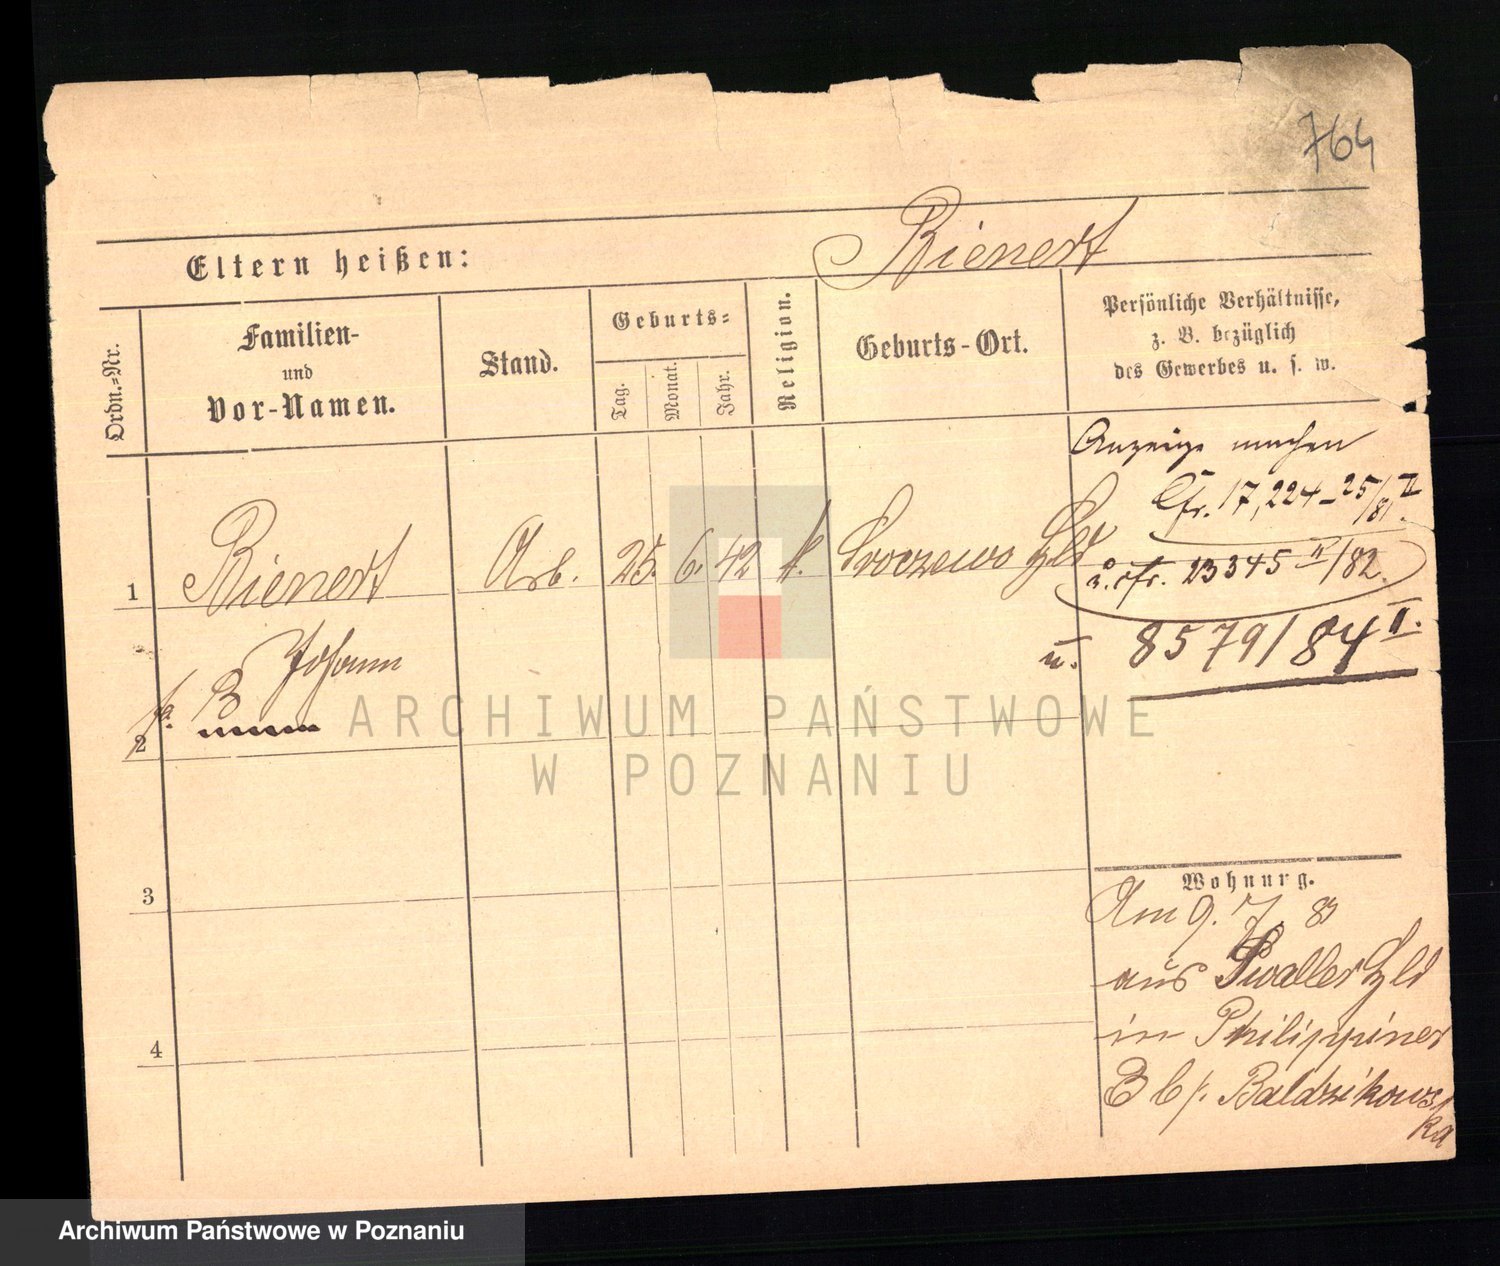 764
Eltern heißen:
Bienert
Ordn.-Nr.
Familien-
und
Vor-Namen.
Stand.
Geburts-
Tag.
Monat.
Jahr.
Religion.
Geburts-Ort.
Persönliche Verhältnisse,
z. B. bezüglich
des Gewerbes u. s. w.
Anzeige machen
Cfr. 17,224 - 25/II /81.
1
Bienert
Arb.
25.
6.
42
k.
u. cfr. 23345 II/82.
Johann
u. 8579/84 I.
2
3
4
Wohnung.
Am 9. 7. 83
aus
in Philippiner
3 b/. Baldzikows
ka
ARCHIWUM PAŃSTWOWE
W POZNANIU
Archiwum Państwowe w Poznaniu